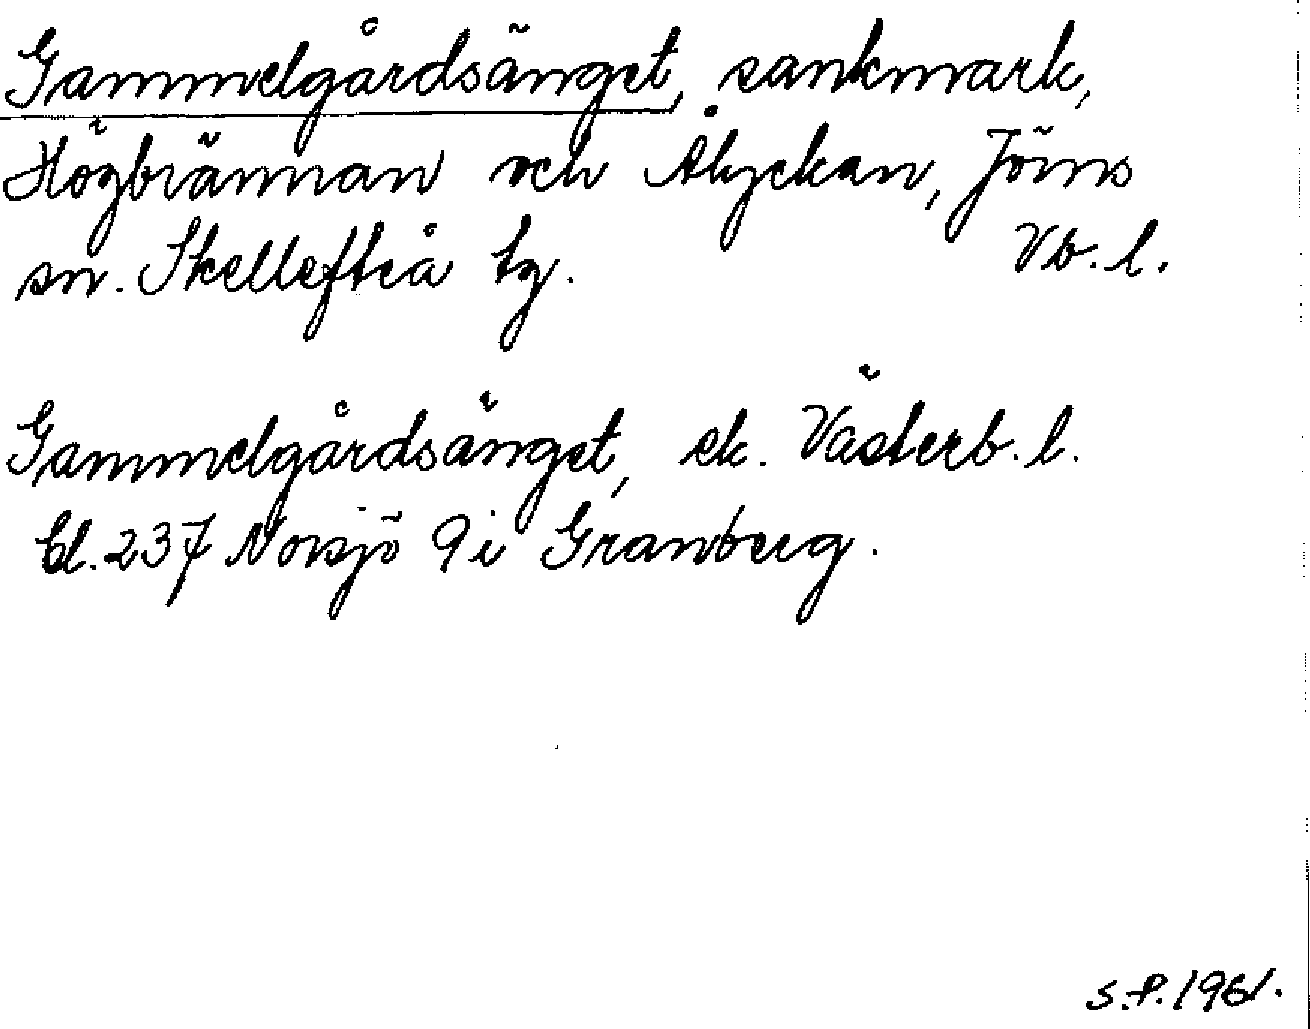 Gammelgårdsänget, sankmark,
Högbrännan och Ålyckan, Jörns
sn. Skellefteå tg. Vb. l.
Gammelgårdsänget, ek. Västerb. l.
bl. 237 Norsjö 9 i Granberg.
S.P. 1961.